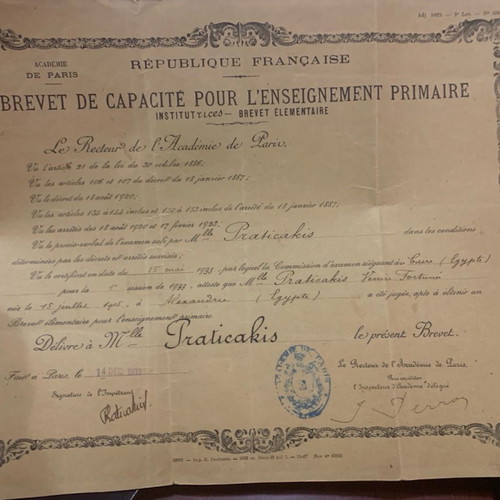 ACADÉMIE
DE PARIS
RÉPUBLIQUE FRANÇAISE
BREVET DE CAPACITÉ POUR L'ENSEIGNEMENT PRIMAIRE
INSTITUTRICES — BREVET ÉLÉMENTAIRE
Le Recteur de l'Académie de Paris,
Vu l'article 21 de la loi du 30 octobre 1886;
Vu les articles 106 et 107 du décret du 18 janvier 1887;
Vu le décret du 18 août 1920;
Vu les articles 135 à 144 inclus et 150 à 152 inclus de l'arrêté du 18 janvier 1887;
Vu les arrêtés des 18 août 1920 et 17 février 1923;
Vu le procès-verbal de l'examen subi par Mlle Praticakis dans les conditions
déterminées par les décrets et arrêtés susvisés;
Vu le certificat en date du 15 mai 1933, par lequel la Commission d'examen siégeant au Caire (Egypte)
pour la session de 1933, atteste que Mlle Praticakis
née le 15 juillet à Alexandrie (Egypte) a été jugée apte à obtenir un
Brevet élémentaire pour l'enseignement primaire
Délivre à Mlle Praticakis le présent Brevet.
Fait à Paris, le 14 DEC
Le Recteur de l'Académie de Paris,
Signature de l'Impétrant
l'Inspecteur d'Académie délégué